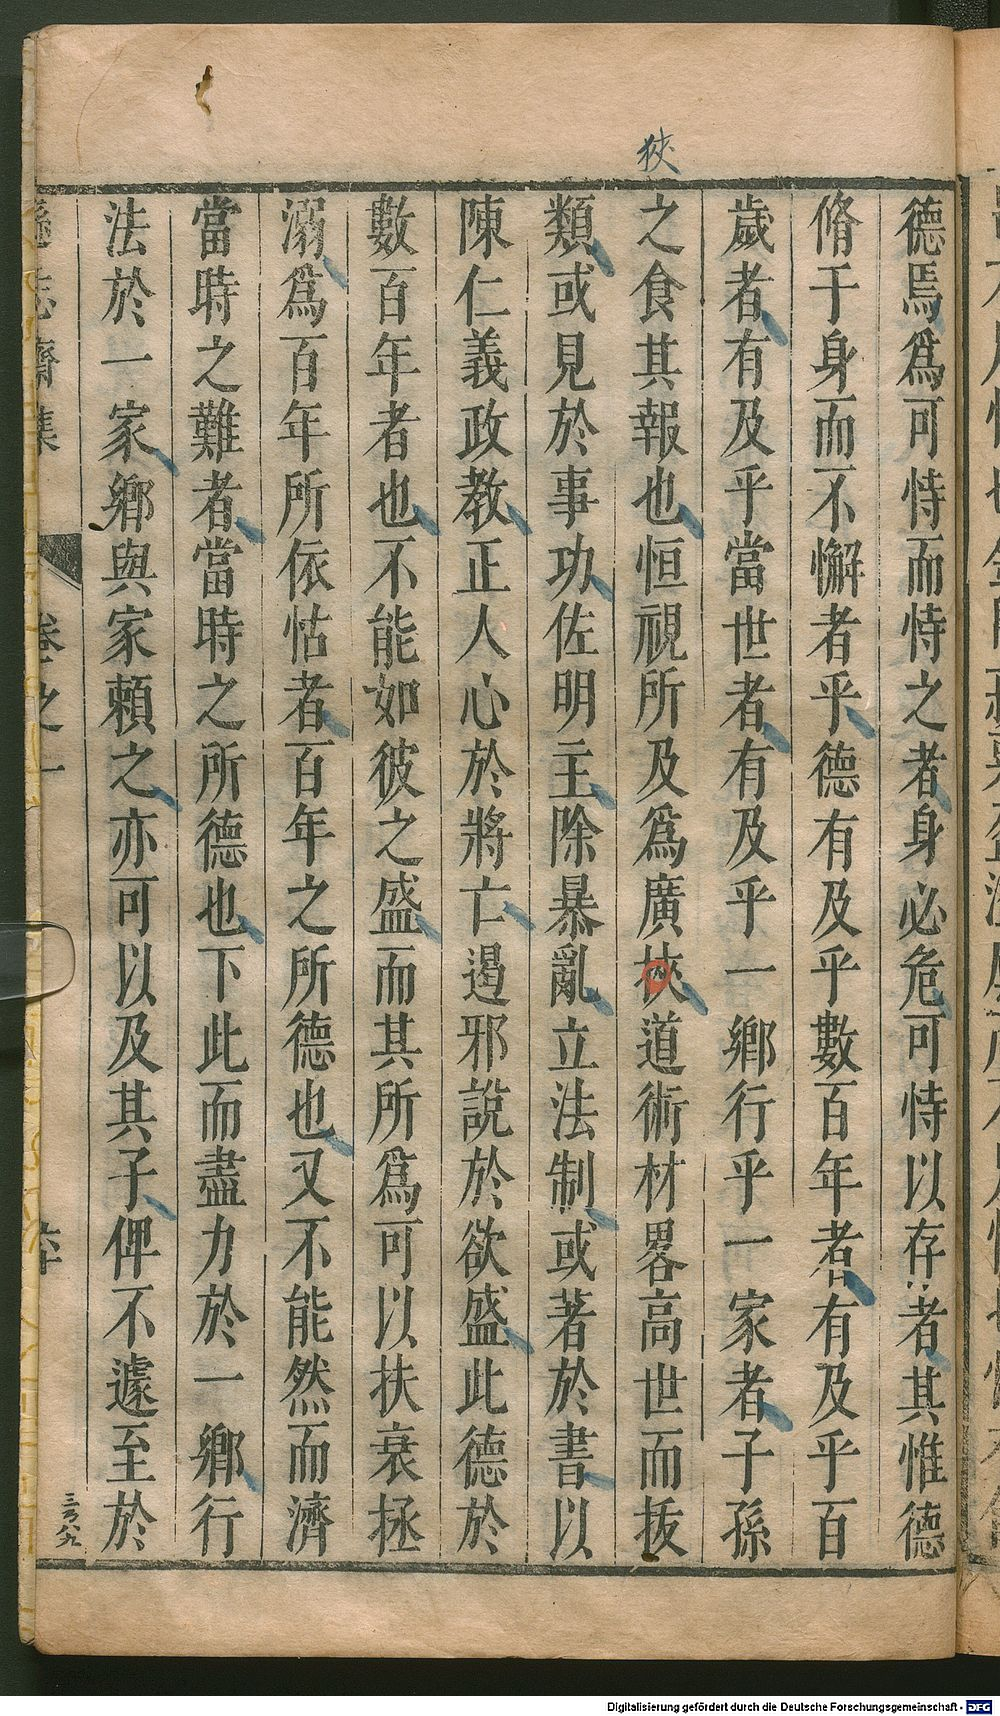 狹
德焉爲可恃而恃之者身必危可恃以存者其惟德
脩于身而不懈者乎德有及乎數百年者有及乎百
歲者有及乎當世者有及乎一鄉行乎一家者子孫
之食其報也恒視所及爲廣挾道術材畧高世而拔
類或見於事功佐明主除暴亂立法制或著於書以
陳仁義政教正人心於將亡遏邪說於欲盛此德於
數百年者也不能如彼之盛而其所爲可以扶衰拯
溺爲百年所依怙者百年之所德也又不能然而濟
當時之難者當時之所德也下此而盡力於一鄉行
法於一家鄉與家賴之亦可以及其子俾不遽至於
遜志齋集 卷之一
Digitalisierung gefördert durch die Deutsche Forschungsgemeinschaft - DFG